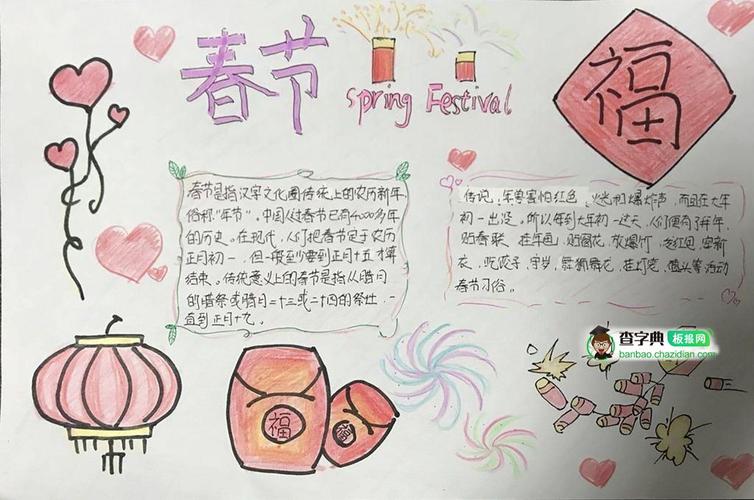 春节
Spring Festival
福
春节是指汉字文化圈传统上的农历新年
俗称"年节",中国人过春节已有4000多年
的历史。在现代,人们把春节定于农历
正月初一,但一般至少要到正月十五才算
结束。传统意义上的春节是指从腊月
的腊祭或腊月二十三或二十四的祭灶,一
直到正月十九。
传说,年兽害怕红色、火光和爆炸声,而且在大年
初一出没,所以每到大年初一这天,人们便有了拜年、
贴春联、挂年画、贴窗花、放爆竹、发红包、穿新
衣、吃饺子、守岁、舞狮舞龙、挂灯笼、磕头等活动
春节习俗。
查字典 板报网
banbao.chazidian.com
福
福